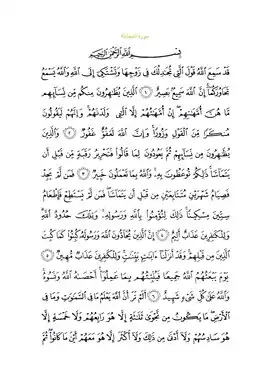 سورة المجادلة
بسم الله الرحمن الرحيم
قَدْ سَمِعَ اللَّهُ قَوْلَ الَّتِي تُجَادِلُكَ فِي زَوْجِهَا وَتَشْتَكِي إِلَى اللَّهِ وَاللَّهُ يَسْمَعُ
تَحَاوُرَكُمَا إِنَّ اللَّهَ سَمِيعٌ بَصِيرٌ ١ الَّذِينَ يُظَاهِرُونَ مِنكُم مِّن نِّسَائِهِم
مَّا هُنَّ أُمَّهَاتِهِمْ إِنْ أُمَّهَاتُهُمْ إِلَّا الَّائِي وَلَدْنَهُمْ وَإِنَّهُمْ لَيَقُولُونَ
مُنكَرًا مِّنَ الْقَوْلِ وَزُورًا وَإِنَّ اللَّهَ لَعَفُوٌّ غَفُورٌ ٢ وَالَّذِينَ
يُظَاهِرُونَ مِن نِّسَائِهِمْ ثُمَّ يَعُودُونَ لِمَا قَالُوا فَتَحْرِيرُ رَقَبَةٍ مِّن قَبْلِ أَن
يَتَمَاسَّا ذَلِكُمْ تُوعَظُونَ بِهِ وَاللَّهُ بِمَا تَعْمَلُونَ خَبِيرٌ ٣ فَمَن لَّمْ يَجِدْ
فَصِيَامُ شَهْرَيْنِ مُتَتَابِعَيْنِ مِن قَبْلِ أَن يَتَمَاسَّا فَمَن لَّمْ يَسْتَطِعْ فَإِطْعَامُ
سِتِّينَ مِسْكِينًا ذَلِكَ لِتُؤْمِنُوا بِاللَّهِ وَرَسُولِهِ وَتِلْكَ حُدُودُ اللَّهِ
وَلِلْكَافِرِينَ عَذَابٌ أَلِيمٌ ٤ إِنَّ الَّذِينَ يُحَادُّونَ اللَّهَ وَرَسُولَهُ كُبِتُوا كَمَا كُبِتَ
الَّذِينَ مِن قَبْلِهِمْ وَقَدْ أَنزَلْنَا آيَاتٍ بَيِّنَاتٍ وَلِلْكَافِرِينَ عَذَابٌ مُّهِينٌ ٥
يَوْمَ يَبْعَثُهُمُ اللَّهُ جَمِيعًا فَيُنَبِّئُهُم بِمَا عَمِلُوا أَحْصَاهُ اللَّهُ وَنَسُوهُ
وَاللَّهُ عَلَى كُلِّ شَيْءٍ شَهِيدٌ ٦ أَلَمْ تَرَ أَنَّ اللَّهَ يَعْلَمُ مَا فِي السَّمَاوَاتِ وَمَا فِي
الْأَرْضِ مَا يَكُونُ مِن نَّجْوَى ثَلَاثَةٍ إِلَّا هُوَ رَابِعُهُمْ وَلَا خَمْسَةٍ إِلَّا
هُوَ سَادِسُهُمْ وَلَا أَدْنَى مِن ذَلِكَ وَلَا أَكْثَرَ إِلَّا هُوَ مَعَهُمْ أَيْنَ مَا كَانُوا ثُمَّ